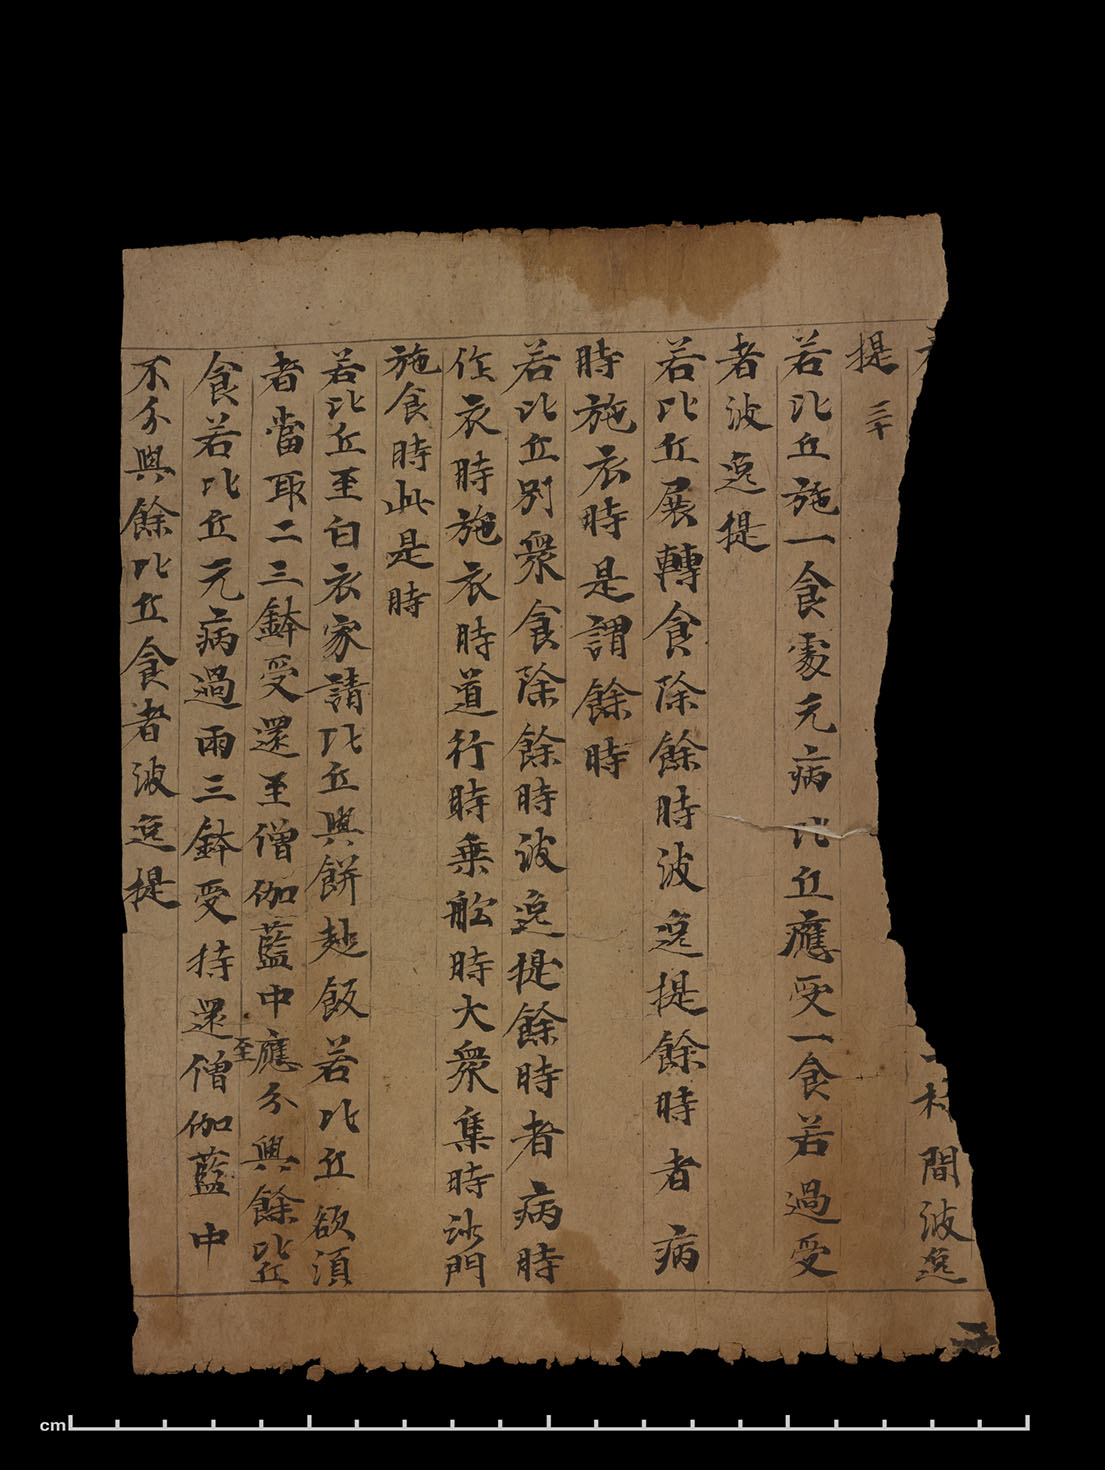 村間波逸
提 三十
若比丘施一食處无病比丘應受一食若過受
者波逸提
若比丘展轉食除餘時波逸提餘時者病
時施衣時是謂餘時
若比丘別衆食除餘時波逸提餘時者病時
作衣時施衣時道行時乗舩時大衆集時沙門
施食時此是時
若比丘至白衣家請比丘與餅麨飯若比丘欲須
者當取二三鉢受還至僧伽藍中應分與餘比丘
食若比丘无病過兩三鉢受持還至僧伽藍中
不分與餘比丘食者波逸提
cm